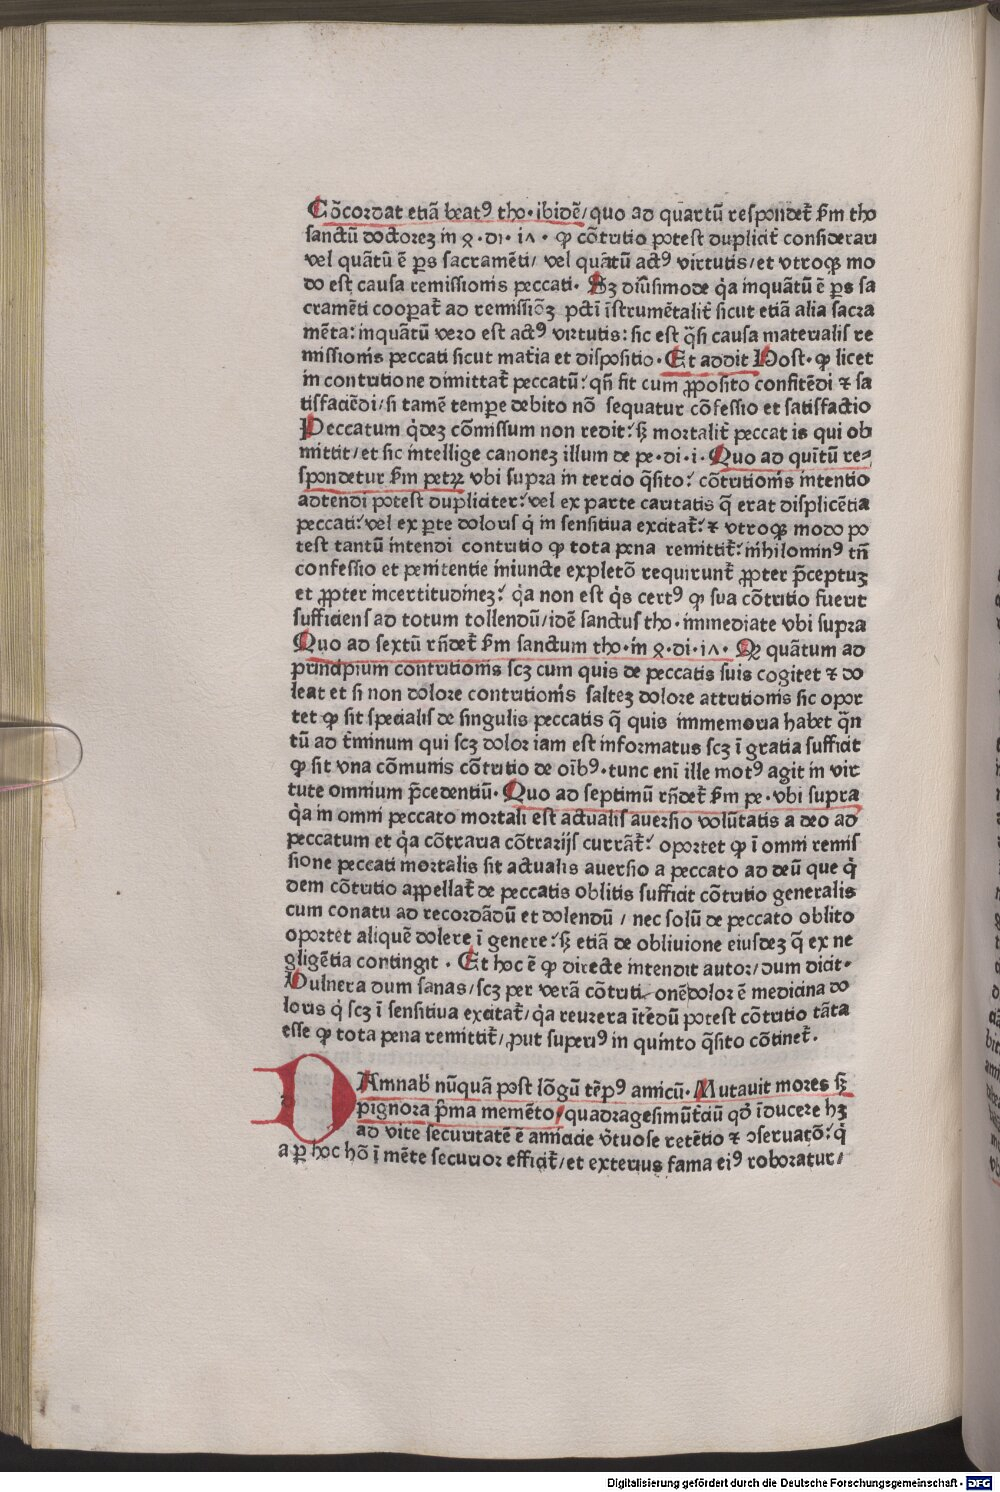 Cōcordat etiā beatꝰ tho· ibidē/ quo ad quartū respondet̄ ẜm tho
sanctū doctoreꝫ in 4· di· 17· ꝙ cōtritio potest duplicit̄ considerari
vel quātū ē ꝑs sacramēti/ vel quātū actꝰ virtutis/ et vtroqꝫ mo
do est causa remissionis peccati· Sꝫ diūsimode q̇a inquātū ē ꝑs sa
cramēti cooꝑat̄ ad remissiōꝫ pctī īstrumētalit̄ sicut etiā alia sacra
mēta: inquātū vero est actꝰ virtutis: sic est q̄si causa materialis re
missionis peccati sicut mat̄ia et dispositio· Et addit Host· ꝙ licet
in contritione dimittat̄ peccatū: qn̄ fit cum ꝓposito confitēdi ⁊ sa
tisfaciēdi/ si tamē temꝑe debito nō sequatur cōfessio et satisfactio
Peccatum q̇deꝫ cōmissum non redit: sꝫ mortalit̄ peccat is qui ob
mittit/ et sic intellige canoneꝫ illum de pe· di· i· Quo ad quītū re⸗
spondetur ẜm petꝝ vbi supra in tercio q̄sito: cōtritionis intentio
adtendi potest dupliciter: vel ex parte caritatis q̄ erat displicētia
peccati: vel ex ꝑte doloris q̇ in sensitiua excitat̄: ⁊ vtroqꝫ modo po
test tantū intendi contritio ꝙ tota pena remittit̄: nihilominꝰ tn̄
confessio et penitentie iniuncte expletō requirunt̄ ꝓpter p̄ceptuꝫ
et ꝓpter incertitudineꝫ: q̇a non est q̇s certꝰ ꝙ sua cōtritio fuerit
sufficiens ad totum tollendū/ idē sanctus tho· immediate vbi supra
Quo ad sextū rn̄det̄ ẜm sanctum tho· in 4· di· 17· Qꝙ quātum ad
principium contritionis scꝫ cum quis de peccatis suis cogitet ⁊ do
leat et si non dolore contritionis salteꝫ dolore attritionis sic opor
tet ꝙ sit specialis de singulis peccatis q̄ quis in memoria habet q̄n
tū ad t̄minum qui scꝫ dolor iam est informatus scꝫ ī gratia sufficit
ꝙ sit vna cōmunis cōtritio de oībꝰ· tunc enī ille motꝰ agit in vir
tute omnium p̄cedentiū· Quo ad septimū rn̄det̄ ẜm pe· vbi supra
q̇a in omni peccato mortali est actualis auersio volūtatis a deo ad
peccatum et q̇a cōtraria cōtrarijs currāt̄: oportet ꝙ ī omni remis
sione peccati mortalis sit actualis auersio a peccato ad deū que q̇
dem cōtritio appellat̄ de peccatis oblitis sufficit cōtritio generalis
cum conatu ad recordādū et dolendū / nec solū de peccato oblito
oportet aliquē dolere ī genere: sꝫ etiā de obliuione eiusdeꝫ q̄ ex ne
gligētia contingit · Et hoc ē ꝙ directe intendit autor/ dum dicit·
Vulnera dum sanas/ scꝫ per verā cōtriti onē dolor ē medicina do
loris q̇ scꝫ ī sensitiua excitat̄/ q̇a reuera ītēdū potest cōtritio tāta
esse ꝙ tota pena remittit̄/ ꝓut superiꝰ in quinto q̄sito cōtinet̄·
DAmnab̄ nūquā post lōgū tēpꝰ amicū· Mutauit mores sꝫ
pignora p̄ma memēto/ quadragesimūt̄ciū qd̄ īducere hꝫ
ad vite securitatē ē amicicie v̄tuose retētio ⁊ ɔseruatō: q̇
a ꝑ hoc hō ī mēte securior efficit̄/ et exterius fama eiꝰ roboratur/
Digitalisierung gefördert durch die Deutsche Forschungsgemeinschaft - DFG